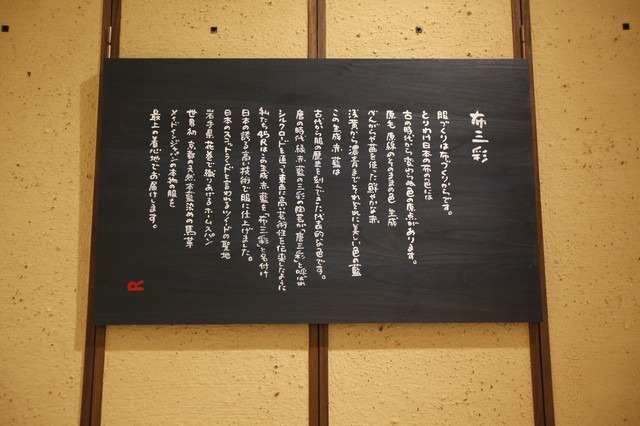 布三彩
服づくりは布づくりからです。
とりわけ日本の布の色には
古の時代から変わらぬ色の原点があります。
原毛 原綿のそのままの色 生成
べんがらや茜を使った鮮やかな赤
浅黄から濃青までそれぞれに美しい色の藍
この生成 赤 藍は
古代から服の歴史を刻んできた代表的な色です。
唐の時代 緑 赤 藍の三彩の陶芸が「唐三彩」と呼ばれ
シルクロードを通って東西に高い芸術性を伝来したように
私たち45Rはこの生成 赤 藍を「布三彩」と名付け
日本の誇る高い技術で服に仕上げました。
日本のスコットランドと言われるツイードの聖地
岩手県花巻で織りあげるホームスパン
世界初 京都の天然本藍染めの馬革
メイドインジャパンの本物の服を
最上の着心地でお届けします。
R